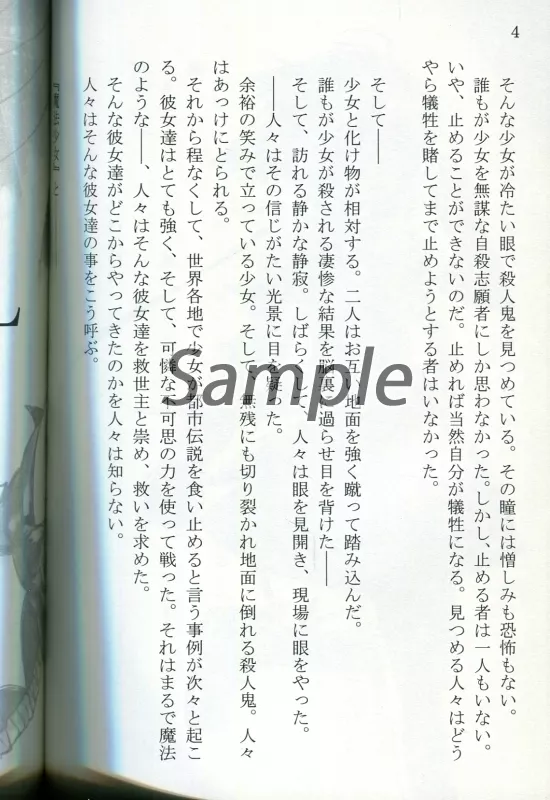 4
そんな少女が冷たい眼で殺人鬼を見つめている。その瞳には憎しみも恐怖もない。
誰もが少女を無謀な自殺志願者にしか思わなかった。しかし、止める者は一人もいない。
いや、止めることができないのだ。止めれば当然自分が犠牲になる。見つめる人々はどう
やら犠牲を賭してまで止めようとする者はいなかった。
そして――
少女と化け物が相対する。二人はお互い地面を強く蹴って踏み込んだ。
誰もが少女が殺される凄惨な結果を脳裏に過らせ目を背けた――
そして、訪れる静かな静寂。しばらくして、人々は眼を見開き、現場に眼をやった。
――人々はその信じがたい光景に目を疑った。
余裕の笑みで立っている少女。そして、無残にも切り裂かれ地面に倒れる殺人鬼。人々
はあっけにとられる。
それから程なくして、世界各地で少女が都市伝説を食い止めると言う事例が次々と起こ
る。彼女達はとても強く、そして、可憐な不可思の力を使って戦った。それはまるで魔法
のような――、人々はそんな彼女達を救世主と崇め、救いを求めた。
そんな彼女達がどこからやってきたのかを人々は知らない。
人々はそんな彼女達の事をこう呼ぶ。
『魔法少女』と
Sample